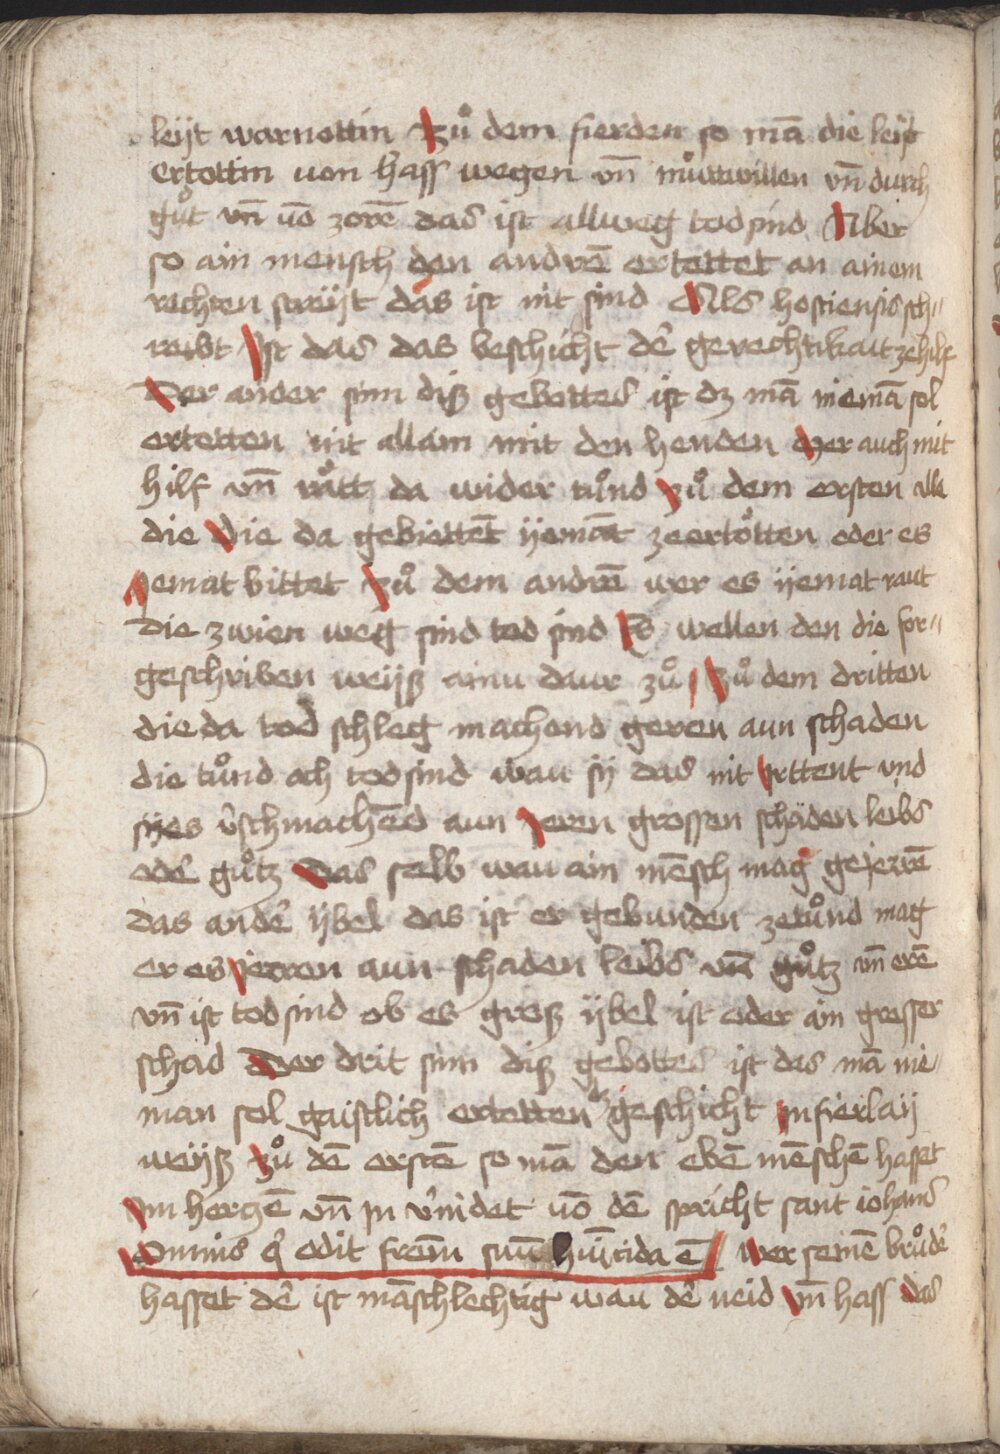 leÿt warnottin Zů dem fierden so mā die leÿt
Ertottin von hass wegen vn̄ můttwillen vn̄ durch
gůt vn̄ vō zorē das ist allweg todsind Aber
so ain mensch den andrē ertottet an ainem
rechten streÿt das ist nit sind Als hostiensis sch„
reibt Ist das das beschicht dē gerechtikait zehilf
Der ander sinn diß gebottes ist dz mā niemā sol
ertotten nit allain mit den henden Mer auch mit
hilf vn̄ rått da wider tůnd zů dem ersten alle
die Die da gebiettēt ÿemāt zeertötten oder es
Jemat bittet Zů dem andrē wer es ÿemat raut
Die zwien weg sind tod sind Es wellen den die for„
geschriben weÿß ainu daur zů Zů dem dritten
die da tod schleg machend geren aun schaden
die tůnd och todsind wan sÿ das nit Irttent vnd
sÿes v̄schmachēd aun Jeren grossen schäden leibs
odē gůtz Das selb wan ain mēsch mag gejerrē
das andē ÿbel das ist er gebunden zetůnd mag
er es jerren aun schaden leibs vn̄ gůtz vn̄ erē
vn̄ ist todsind ob es groß ÿbel ist oder ain grosser
schad Der drit sinn diß gebottes ist das mā nie
man sol gaistlich ertotten dz geschicht Jn fierlaÿ
weÿß Zů dē ersten so mā den ebē mēschē hasset
Im herczē vn̄ jn v̄nidet vō dē spricht sant iohans
Omnis q̄ odit frem̄ suū homicida ē Wer seinē brůdē
hasset dē ist māschlechtig wan dē neid vn̄ hass das